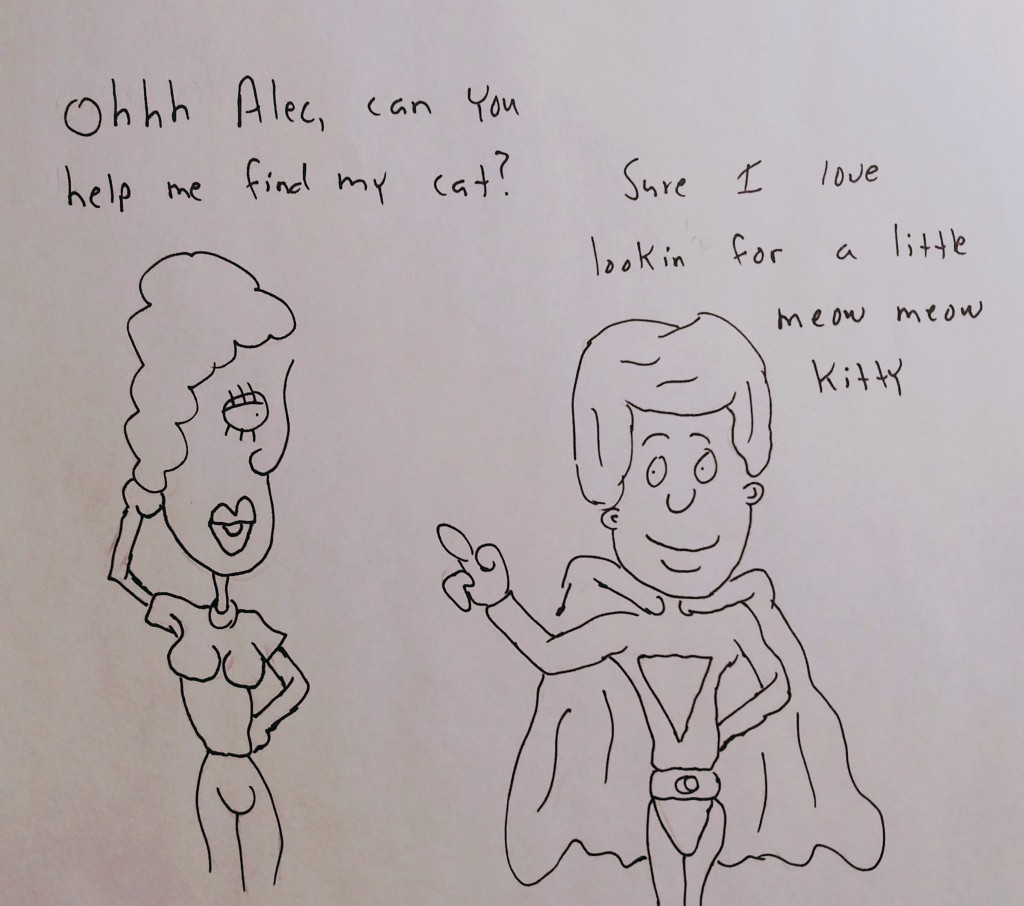 Ohhh Alec, can You
help me find my cat?
Sure I love
lookin for a little
meow meow
kitty